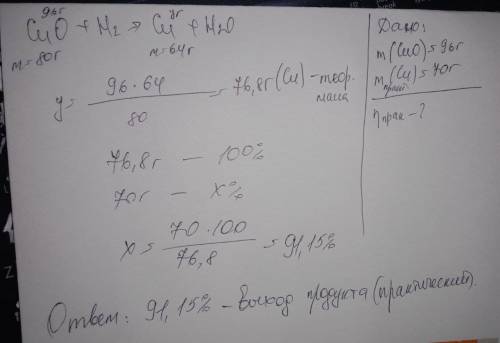 96г yг
CuO + H₂ → Cu + H₂O
m=80г m=64г
y = 96·64 / 80 = 76,8г (Cu) – теор. масса
76,8г — 100%
70г — x%
x = 70·100 / 76,8 = 91,15%
Ответ: 91,15% – выход продукта (практический).
Дано:
m(CuO) = 96г
m практ (Cu) = 70г
η прак – ?